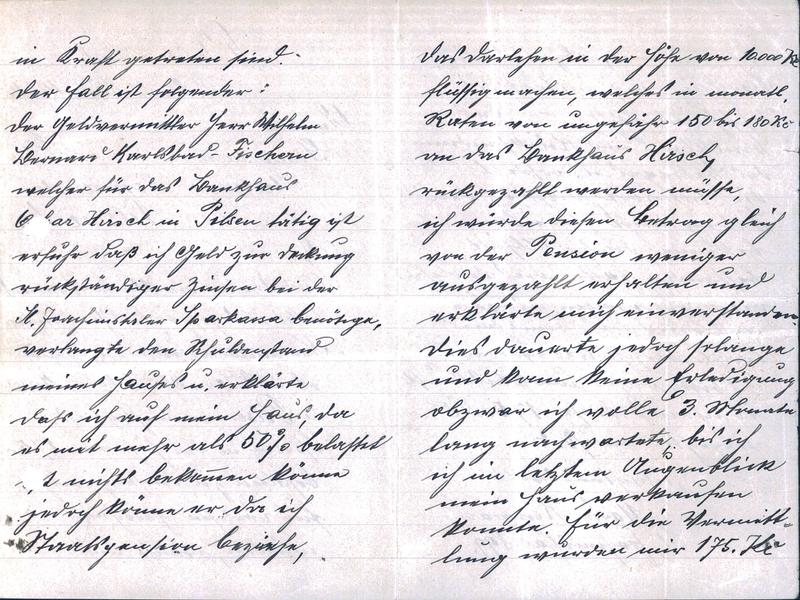 in Kraft getreten sind.
Der Fall ist folgender:
Der Geldvermittler Herr Wilhelm
Bernard Karlsbad-Fischern
welcher für das Bankhaus
Hirsch in Pilsen tätig ist
erfuhr daß ich Geld zur Deckung
rückständiger Zinsen bei der
St. Joachimstaler Sparkassa benötige,
verlangte den Schuldenstand
meines Hauses u. erklärte
dass ich auf mein Haus, da
es mit mehr als 50% belastet
nichts bekommen könne
jedoch könne er da ich
Staatspension beziehe,
das Darlehen in der Höhe von 10.000 Kč
flüssig machen, welches in monatl.
Raten von ungefähr 150 bis 180 Kč
an das Bankhaus Hirsch,
rückgezahlt werden müsse,
ich würde diesen Betrag gleich
von der Pension weniger
ausgezahlt erhalten und
erklärte mich einverstanden.
Dies dauerte jedoch solange
und kam keine Erledigung
obzwar ich volle 3. Monate
lang nachwartete, bis ich
ich im letztem Augenblick
mein Haus verkaufen
konnte. Für die Vermitt-
lung wurden mir 175. Kč